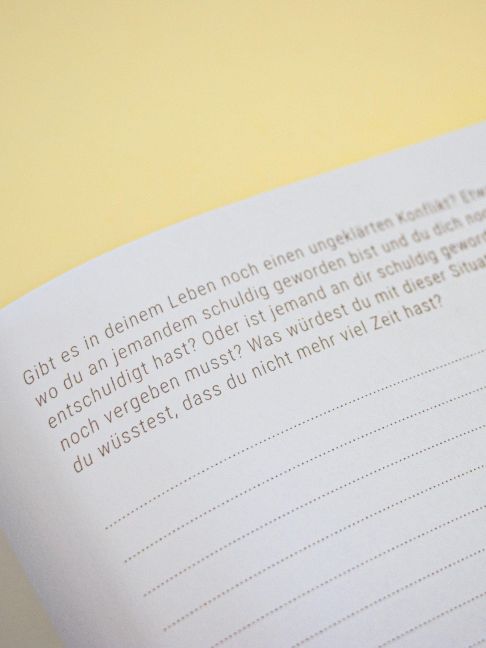 Gibt es in deinem Leben noch einen ungeklärten Konflikt?
wo du an jemandem schuldig geworden bist und du dich
entschuldigt hast? Oder ist jemand an dir schuldig
noch vergeben musst? Was würdest du mit dieser
du wüsstest, dass du nicht mehr viel Zeit hast?